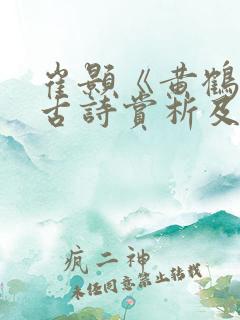 崔顥《黄鶴
古詩賞析及
疯二神
未经同意禁止转载